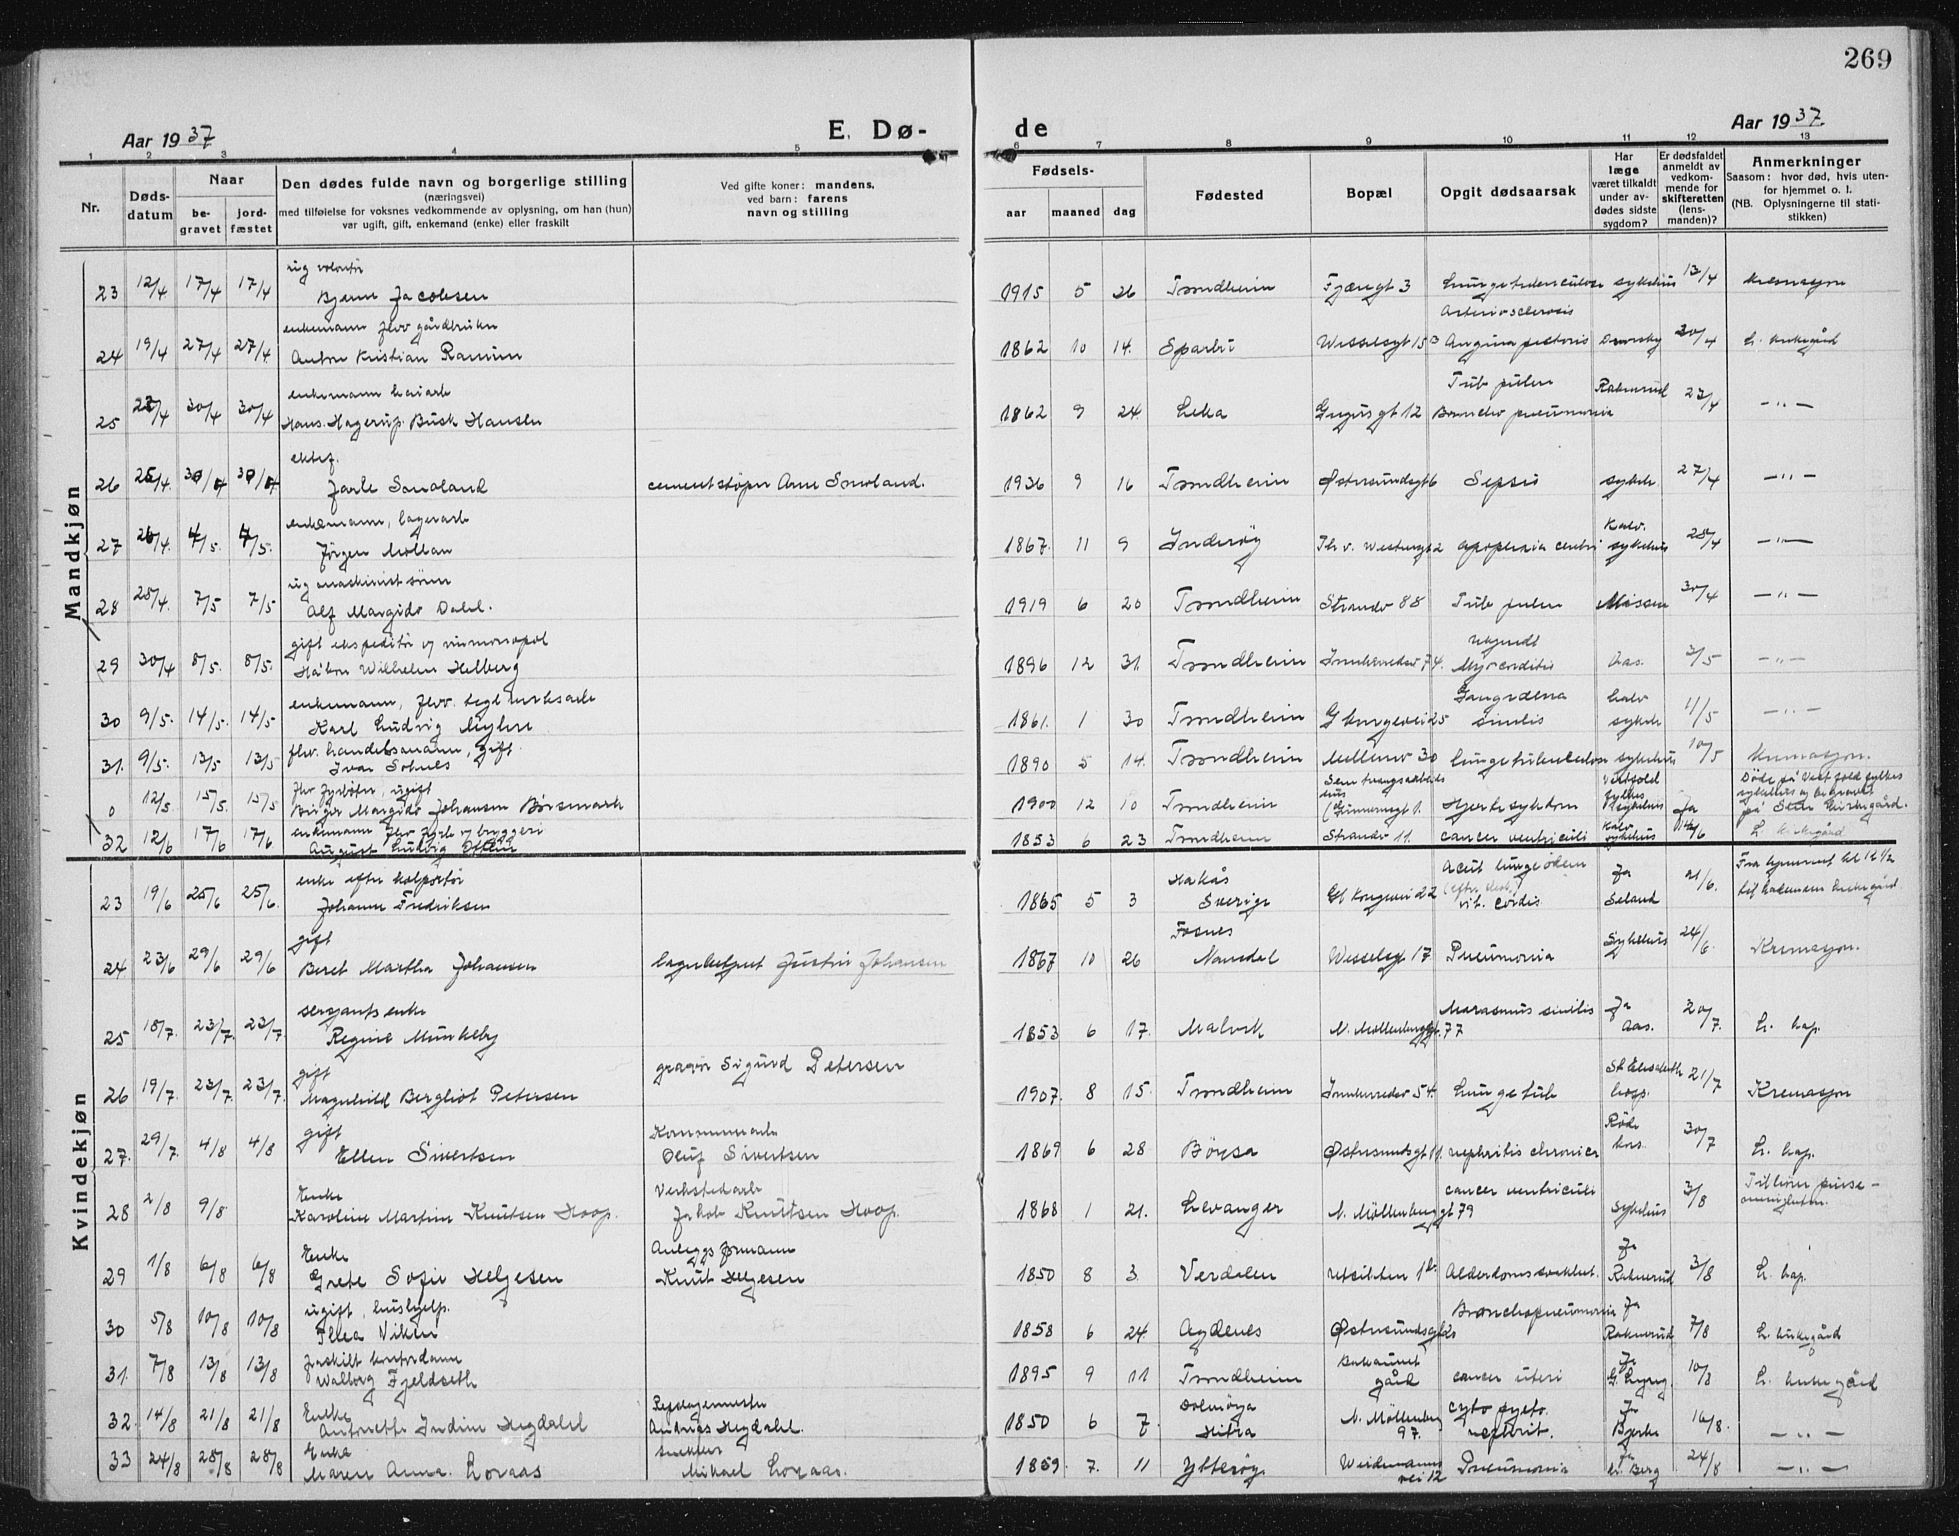 269
Aar 1937
E. Dø-
de
Aar 1937
1 2 3 4 5 6 7 8 9 10 11 12 13
Nr.
Døds-
datum
Naar
be-
gravet
jord-
fæstet
Den dødes fulde navn og borgerlige stilling
(næringsvei)
med tilføielse for voksnes vedkommende av oplysning, om han (hun)
var ugift, gift, enkemand (enke) eller fraskilt
Ved gifte koner: mandens,
ved barn: farens
navn og stilling
Fødsels-
aar maaned dag
Fødested
Bopæl
Opgit dødsaarsak
Har
læge
været tilkaldt
under av-
dødes sidste
sygdom?
Er dødsfaldet
anmeldt av
vedkom-
mende for
skifteretten
(lens-
manden)?
Anmerkninger
Saasom: hvor død, hvis uten-
for hjemmet o. l.
(NB. Oplysningerne til stati-
stikken)
Mandkjøn
ug volontør
23 12/4 17/4 17/4 Bjarne Jacobsen 1915 5 26 Trondheim Fjæregt 3 Lungetuberculose sykehus 13/4 Kremasjon
enkemann fhv gårdbruker Arteriosclerosis
24 19/4 27/4 27/4 Anton Kristian Ramim 1862 10 14. Sparbu Wesselsgt 15 Angina pectoris 20/4 L. kirkegård
enkemann havarb Tub pulm Raknerud
25 30/4 30/4 Hans Hagerup Busk Hansen 1862 9 24. Leka 12 Broncho pneumonia 23/4 —"—
ektef.
26 26/4 Jarle Smoland cementstøper Arne Smoland. 1936 9 16 Trondheim Østersundsgt 6 Sepsis sykeh. 27/4 —"—
enkemann, lagerarb Kalv.
27 26/4. 4/5. 4/5. Jørgen Mollan 1867. 11 9 Inderøy Th v. Westensgt 2 apoplexia cerebri sykehus 28/4 —"—
ug maskinist sønn
28 28/4. 7/5 7/5 Alf Margido Dahl. 1919 6 20 Trondheim Strandv 88 Tub pulm Nissen 30/4 —"—
gift ekspeditør vinmonopol
29 30/4 8/5. 8/5. Håkon Wilhelm Helberg 1896 12 31. Trondheim Innherredsv 74. Myocarditis Aas. 3/5 —"—
enkemann, fhv. teglverksarb Gangræna Kalv
30 9/5. 14/5. 14/5 Karl Ludvig Myhre 1861. 1 30 Trondheim G Kongevei 25 senilis sykeh 11/5 —"—
fhv. handelsmann, gift.
31. 9/5. 13/5 13/5 Ivar Solnes 1890 5 14. Trondheim Mellemv 30 Lungetuberculose sykehus 10/5 Kremasjon.
fhv fyrbøter, ugift
0 12/5 15/5. 15/5 Birger Margido Johansen Børsmark 1900 12 10 Trondheim (Gunnersgt 1. Hjertesykdom Vestfold fylkes sykehus Ja Døde på Vestfold fylkes sykehus og begravet på Stene Kirkegård.
enkemann fhv arb v bryggeri
32 12/6 17/6 17/6 August Ludvig Ottem 1853 6 23 Trondheim Strandv 11. cancer ventriculi Kalv sykehus 14/6 L. kirkegård
Kvindekjøn
enke efter kolportør Hakås Acut lungeødem Ja Fra hjemmet kl 12 1/2
23 19/6 25/6 25/6. Johanne Fredriksen 1865 5 3 Sverige Gl Kongevei 22 vit. cordis Seland 21/6. til Lademoen kirkegård
gift Fosnes
24 23/6 29/6 29/6 Beret Martha Johansen Justin Johansen 1867 10 26 Namdal Wesselsgt 17 Pneumonia Sykehus 24/6. Kremasjon.
sergeants enke Marasmus senilis Ja
25 18/7. 23/7. 23/7. Regine Munkeby 1853 6 17. Malvik N. Møllenberggt. 77 Aas. 20/7. L. kap.
gift gravør Sigurd Petersen St Elisabeth
26 19/7. 23/7. 23/7. Magnhild Bergliot Petersen 1907. 8 15. Trondheim Innherredsv 54. Lungetub hosp. 21/7 Kremasjon
gift Kommunearb Røde
27. 29/7. 4/8 4/8 Ellen Sivertsen Oluf Sivertsen 1869 6 28 Børsa Østersundsgt 11. nephritis chronica kors. 30/7 L. kap.
Enke Verkstedarb cancer ventriculi
28 2/8 9/8 Karoline Martine Knutsen Hoop. Jakob Knuttsen Hoop. 1868 1 21. Levanger N. Møllenberggt 79 Sykehus 3/8
Enke Anleggsformann Ja
29 1/8 6/8 6/8 Grete Sofie Helgesen Knut Helgesen 1850 8 3. Verdalen Alderdomssvakhet. Raknerud 3/8 L. kap.
ugift, hushjelp. Bronchopneumonia Ja
30 5/8 10/8 10/8 Thea Viken 1858 6 24 Agdenes Østersundsgt Raknerud 7/8 L. kirkegård
fraskilt Bakaunet Ja
31. 7/8 13/8 13/8 Walborg Fjeldseth 1895 9 11 Trondheim gård cancer uteri G. Lyng. 10/8 L. kirkegård
Enke Repslagermester Dolmøya N. Møllenberg cyto pyelo Ja
32. 14/8 21/8 21/8 Antonette Indine Hegdahl Andreas Hegdahl. 1850 6 7. Hitra 97. nefrit. Bjerke 16/8. —"—
Enke snekker Ja
33 24/8 28/8 28/8 Maren Anna Loraas Mikael Loraas. 1859 7. 11 Ytterøy Weidemanns vei 12 Pneumonia Berg 24/8 —"—